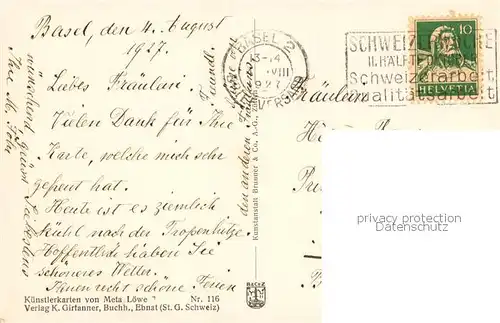 Basel, den 4. August
1927.
Liebes Fräulein
Vielen Dank für Ihre
Karte, welche mich sehr
gefreut hat.
Heute ist es ziemlich
kühl nach der Tropenhitze.
Hoffentlich haben Sie
schöneres Wetter.
Ihnen recht schöne Ferien
wünschend grüsst
Ihre M.
den anderen
Künstlerkarten von Meta Löwe
Nr. 116
Verlag K. Girtanner, Buchh., Ebnat (St. G. Schweiz)
Kunstanstalt Brunner & Co. A.-G., Zürich
BASEL 2
VIII
SCHWEIZ
II. HÄLFTE
Schweizerarbeit
Qualitätsarbeit
10
HELVETIA
Fräulein
privacy protection
Datenschutz